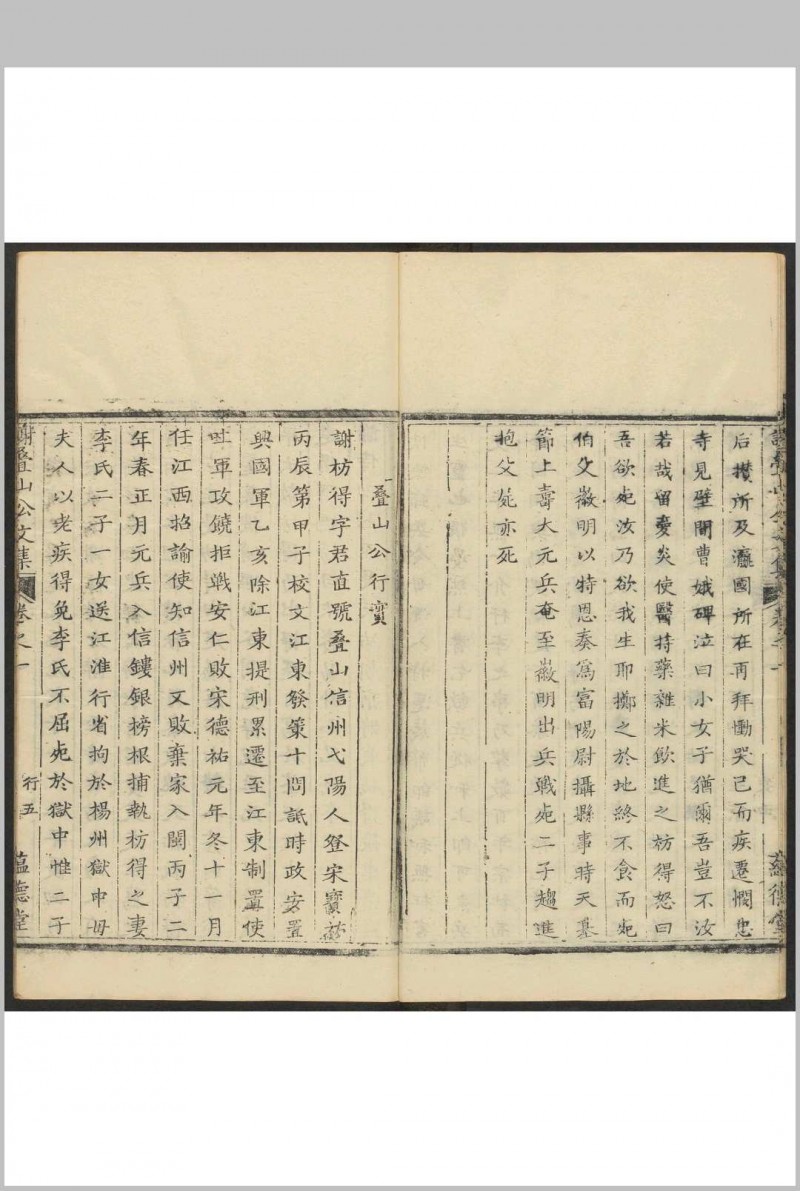 后攅所及瀛國所在再拜慟哭已而疾遷憫忠
寺見壁間曹娥碑泣曰小女子猶爾吾豈不汝
若哉留夢炎使醫持藥雜米飲進之枋得怒曰
吾欲死汝乃欲我生耶擲之於地終不食而死
伯父徽明以特恩奏爲富陽尉攝縣事時天基
節上壽大元兵奄至徽明出兵戰死二子趨進
抱父屍亦死
叠山公行實
謝枋得字君直號叠山信州弋陽人登宋寳祐
丙辰第甲子校文江東發策十問詆時政安置
興國軍乙亥除江東提刑累遷至江東制置使
呂軍攻饒拒戰安仁敗宋德祐元年冬十一月
任江西招諭使知信州又敗棄家入閩丙子二
年春正月元兵入信鏤銀榜根捕執枋得之妻
李氏二子一女送江淮行省拘於楊州獄中母
夫人以老疾得免李氏不屈死於獄中惟二子
謝叠山公文集 卷之一 行五 蘊德堂